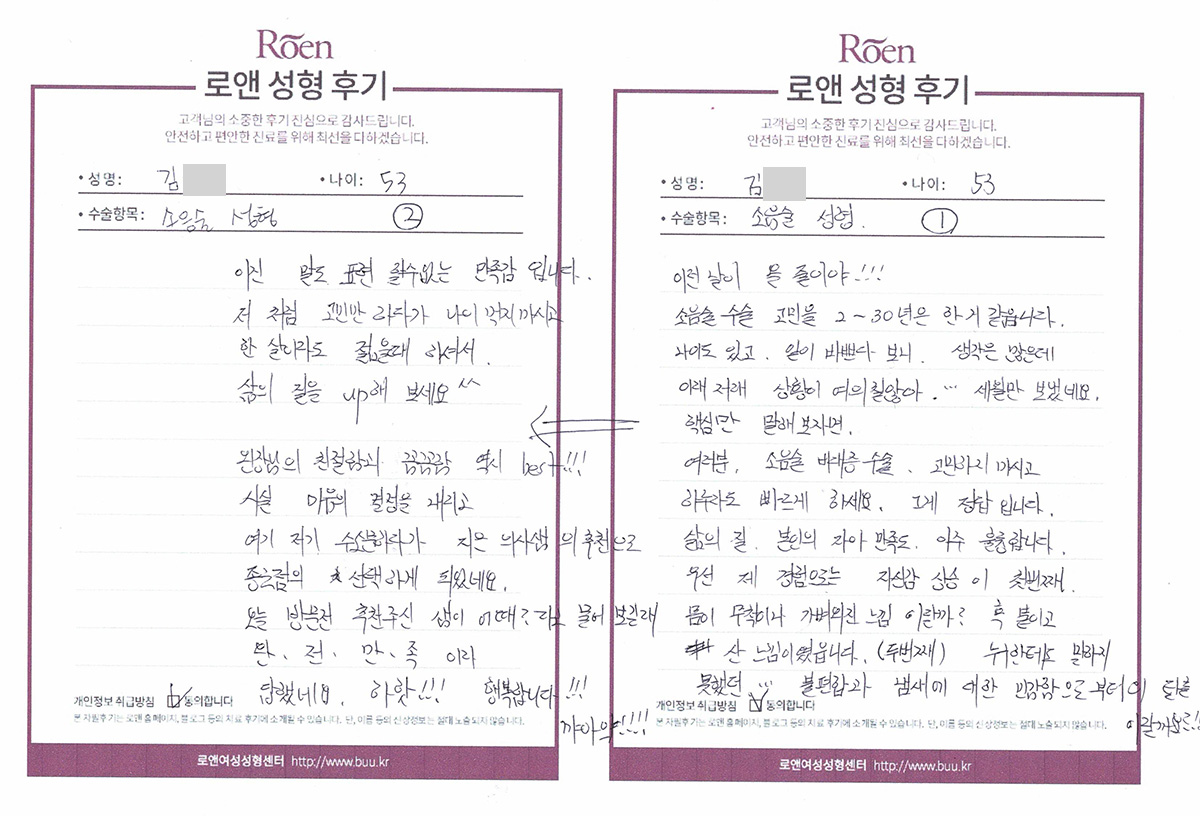 Rōen
로앤 성형 후기
고객님의 소중한 후기 진심으로 감사드립니다.
안전하고 편안한 진료를 위해 최선을 다하겠습니다.
• 성명: 김 • 나이: 53
• 수술항목: 소음순 성형 ②
이건 말도 표현 할수없는 만족감 입니다.
저 처럼 고민만 하다가 나이 먹지 마시고
한 살이라도 젊을때 하셔서.
삶의 질을 up해 보세요 ^^
원장님의 친절함과 꼼꼼함 역시 best!!!
사실 마음의 결정을 내리고
여기 저기 수소문하다가 지은 의사쌤의 추천으로
종국엔 선택하게 되었네요.
오늘 방문전 추천주신 쌤이 어때? 라고 물어 보길래
완.전.만.족 이라
답했네요 하핫!!! 행복합니다!!!
꺄아악!!!
개인정보 취급방침 동의합니다
본 자필후기는 로앤 홈페이지, 블로그 등의 치료 후기에 소개될 수 있습니다. 단, 이름 등의 신상정보는 절대 노출되지 않습니다.
로앤여성성형센터 http://www.buu.kr
Rōen
로앤 성형 후기
고객님의 소중한 후기 진심으로 감사드립니다.
안전하고 편안한 진료를 위해 최선을 다하겠습니다.
• 성명: 김 • 나이: 53
• 수술항목: 소음순 성형. ①
이런 날이 올 줄이야!!!
소음순 수술 고민을 2~30년은 한거 같습니다.
나이도 있고. 일이 바쁘다 보니. 생각은 많은데
이래 저래 상황이 여의칠않아. ... 세월만 보냈네요.
핵심만 말해보자면.
여러분. 소음순 비대증 수술. 고민하지 마시고
하루라도 빠르게 하세요. 그게 정답 입니다.
삶의 질. 본인의 자아 만족도. 아주 훌륭합니다.
우선 제 경험으로는 자신감 상승 이 첫번째.
몸이 무척이나 가벼워진 느낌 이랄까? 혹 붙이고
산 느낌이였습니다. (두번째) 누구한테도 말하지
못했던 ... 불편함과 냄새에 대한 민감함으로부터의 탈출
이랄까요!!
개인정보 취급방침 동의합니다
본 자필후기는 로앤 홈페이지, 블로그 등의 치료 후기에 소개될 수 있습니다. 단, 이름 등의 신상정보는 절대 노출되지 않습니다.
로앤여성성형센터 http://www.buu.kr